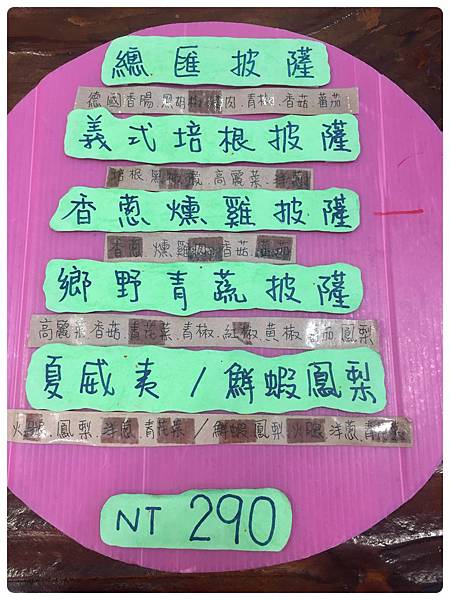 總匯披薩
德國香腸.黑胡椒 肉.青椒.香菇.蕃茄
義式培根披薩
培根.黑 .高麗菜.洋蔥
香蔥燻雞披薩
香蔥.燻雞 .香菇
鄉野青蔬披薩
高麗菜.香菇.青花菜.青椒.紅椒.黃椒. 茄.鳳梨
夏威夷/鮮蝦鳳梨
火腿.鳳梨.洋蔥.青花菜/鮮蝦.鳳梨.火腿.洋蔥.青花菜
NT 290